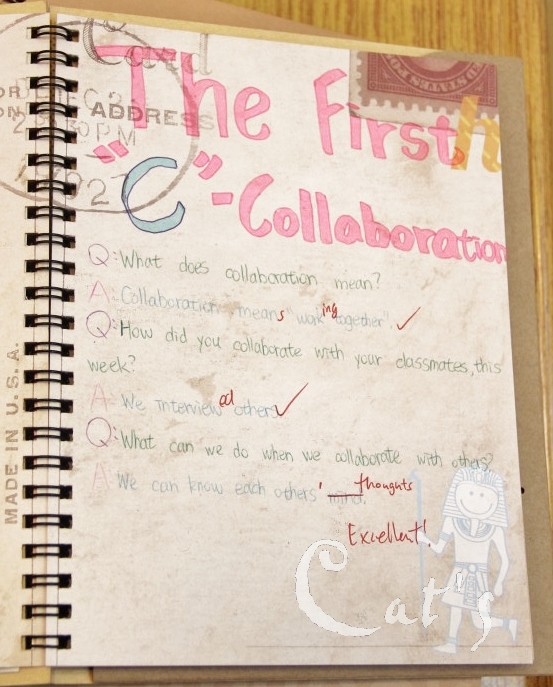 The First
"C"-Collaboration
Q: What does collaboration mean?
A: Collaboration means "working together". ✓
Q: How did you collaborate with your classmates, this
week?
A: We interviewed others. ✓
Q: What can we do when we collaborate with others?
A: We can know each others' mind. thoughts
Excellent!
ADDRESS
30 PM
MADE IN U.S.A.
Cat's